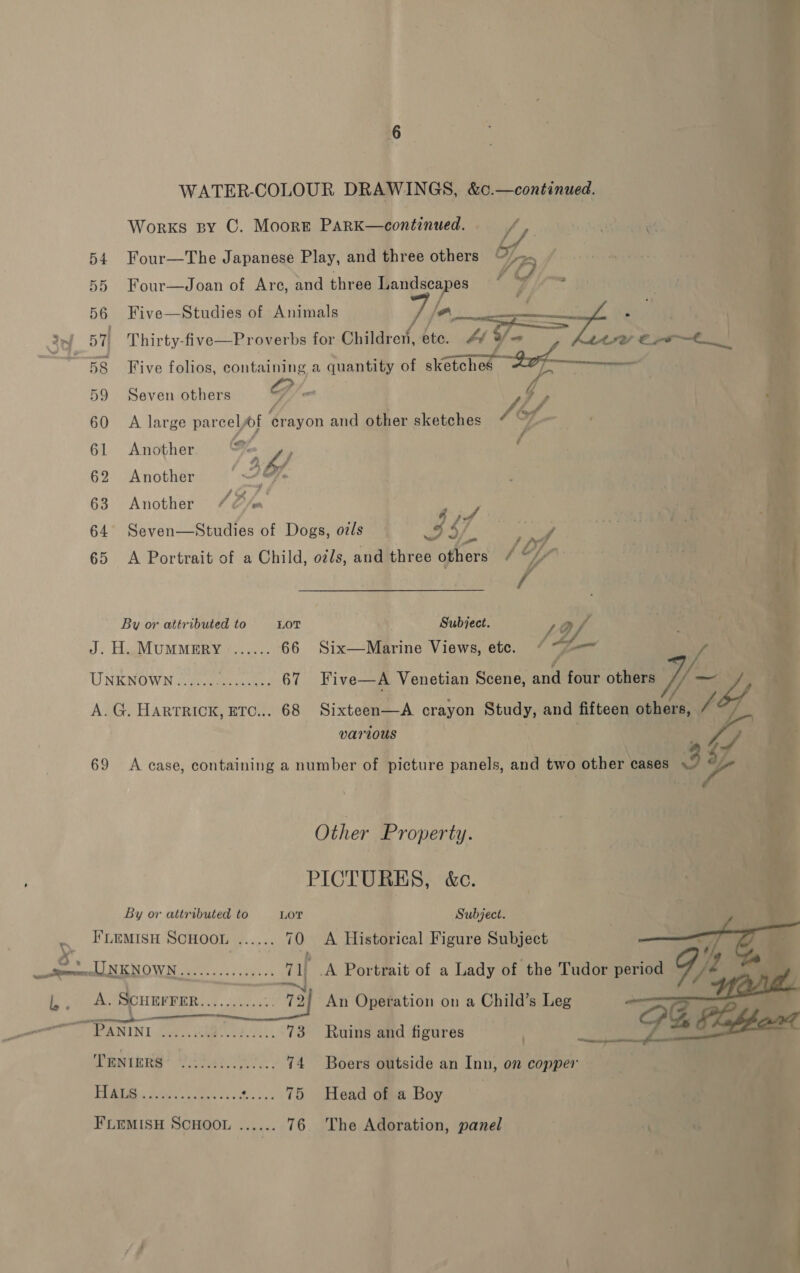 6
WATER-COLOUR DRAWINGS, &c.—continued.
WORKS BY C. MOORE PARK—continued.
54 Four—The Japanese Play, and three others
55 Four—Joan of Arc, and three Landscapes
56 Five—Studies of Animals
57 Thirty-five—Proverbs for Children, etc.
58 Five folios, containing a quantity of sketches
59 Seven others
60 A large parcel of crayon and other sketches
61 Another
62 Another
63 Another
64 Seven—Studies of Dogs, oils
65 A Portrait of a Child, oils, and three others
By or attributed to LOT Subject.
J. H. MUMMERY ...... 66 Six—Marine Views, etc.
UNKNOWN ............... 67 Five—A Venetian Scene, and four others
A. G. HARTRICK, ETC... 68 Sixteen—A crayon Study, and fifteen others,
various
69 A case, containing a number of picture panels, and two other cases
Other Property.
PICTURES, &c.
By or attributed to LOT Subject.
FLEMISH SCHOOL ...... 70 A Historical Figure Subject
UNKNOWN ............... 71 A Portrait of a Lady of the Tudor period
A. SCHEFFER............ 72 An Operation on a Child's Leg
PANINI .................. 73 Ruins and figures
TENIERS .................. 74 Boers outside an Inn, on copper
HALS ..................... 75 Head of a Boy
FLEMISH SCHOOL ...... 76 The Adoration, panel